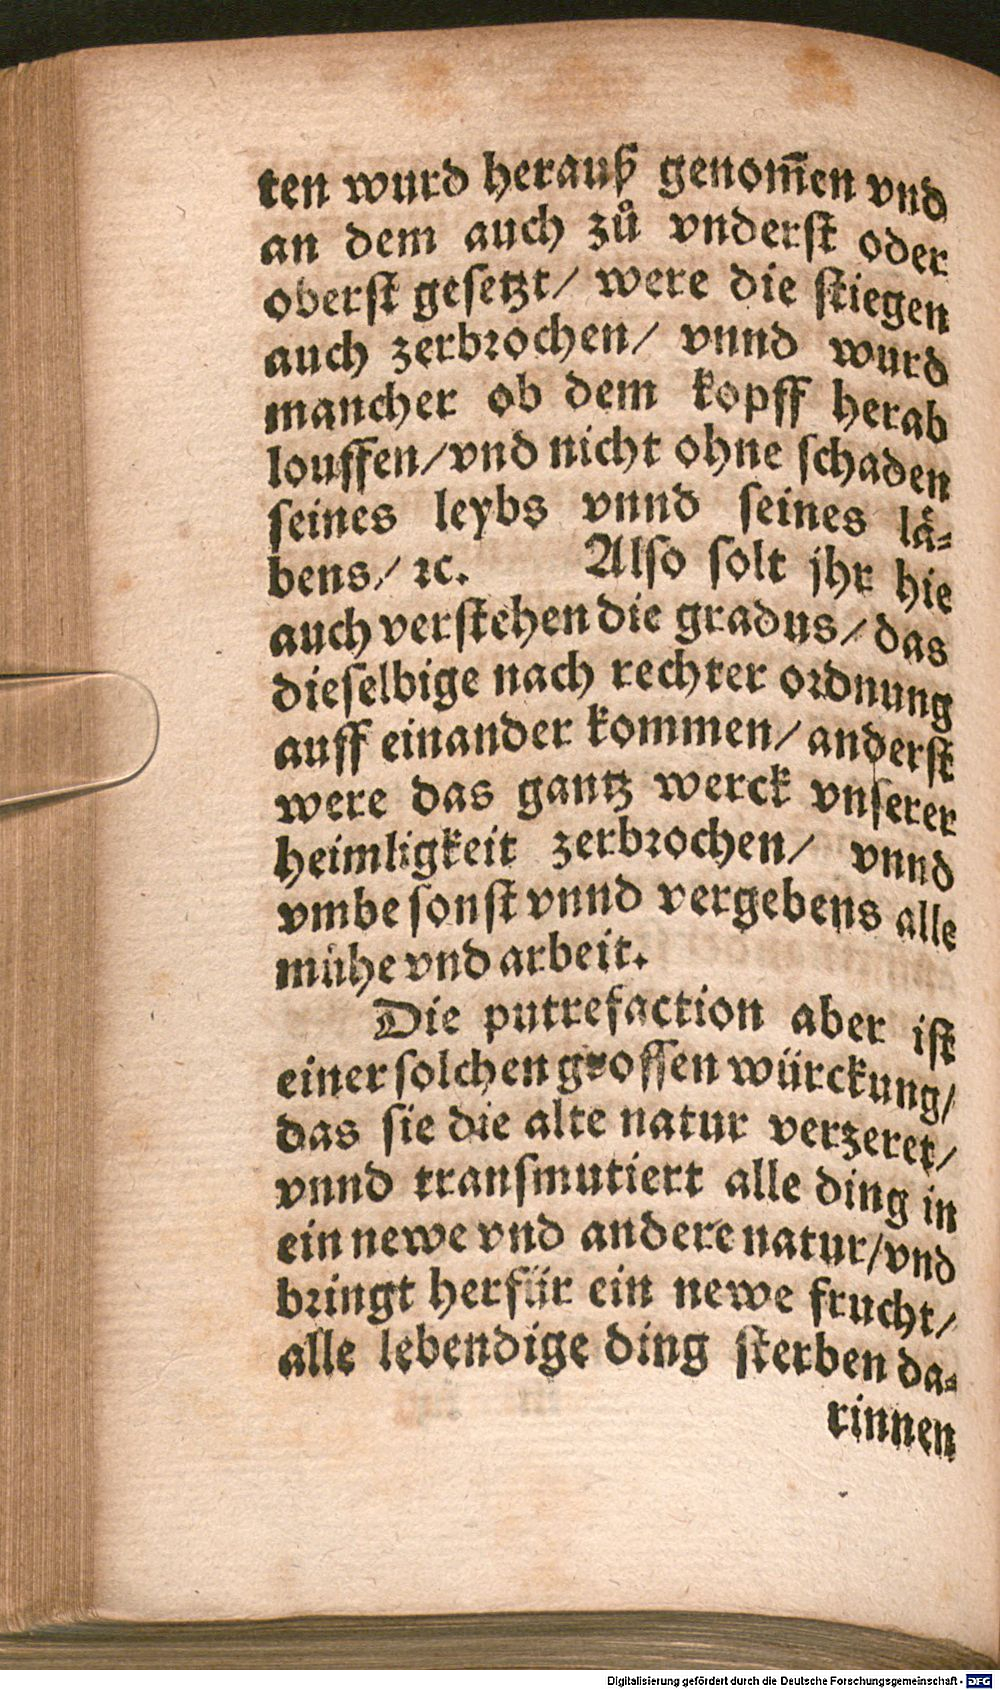 ten wurd herauß genom̄en vnd
an dem auch zů vnderst oder
oberst gesetzt/ were die stiegen
auch zerbrochen/ vnnd wurd
mancher ob dem kopff herab
louffen/vnd nicht ohne schaden
seines leybs vnnd seines lä-
bens/ ꝛc. Also solt jhr hie
auch verstehen die gradus/ das
dieselbige nach rechter ordnung
auff einander kommen/ anderst
were das gantz werck vnserer
heimligkeit zerbrochen/ vnnd
vmbe sonst vnnd vergebens alle
mühe vnd arbeit.
Die putrefaction aber ist
einer solchen grossen würckung/
das sie die alte natur verzeret/
vnnd transmutiert alle ding in
ein newe vnd andere natur/vnd
bringt herfür ein newe frucht/
alle lebendige ding sterben da-
rinnen
Digitalisierung gefördert durch die Deutsche Forschungsgemeinschaft - DFG